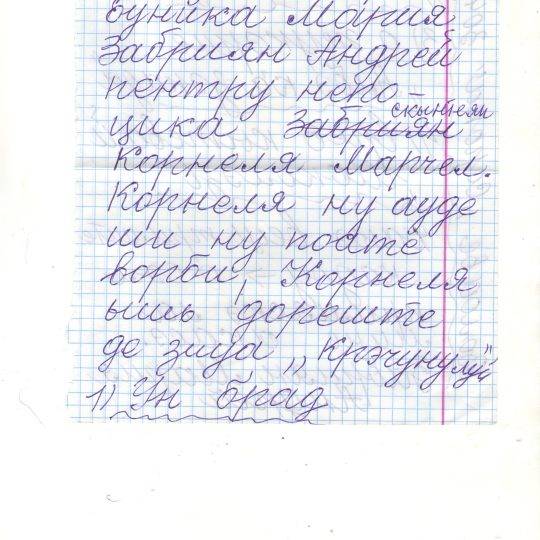 буника Мария
Забриян Андрей
пентру непо-
цика Забриян скынтеян
Корнеля Марчел.
Корнеля ну ауде
ши ну поате
ворби, Корнеля
ышь дореште
де зиуа „Крэчунулуй"
1) Ун брад